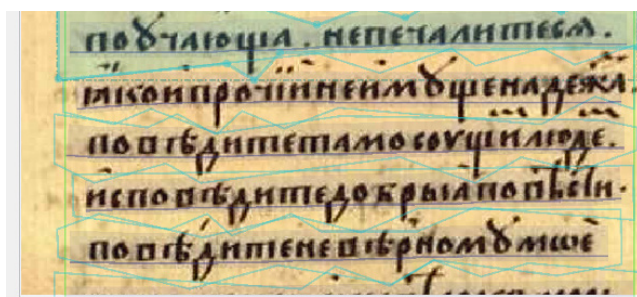 поꙋчающиа . непечалитеса .
ꙗкоипрочіинеимꙋщенадежа .
повѣдитетамосоущилюде .
исповѣдитедобрыа
повѣдитеневѣрномꙋ